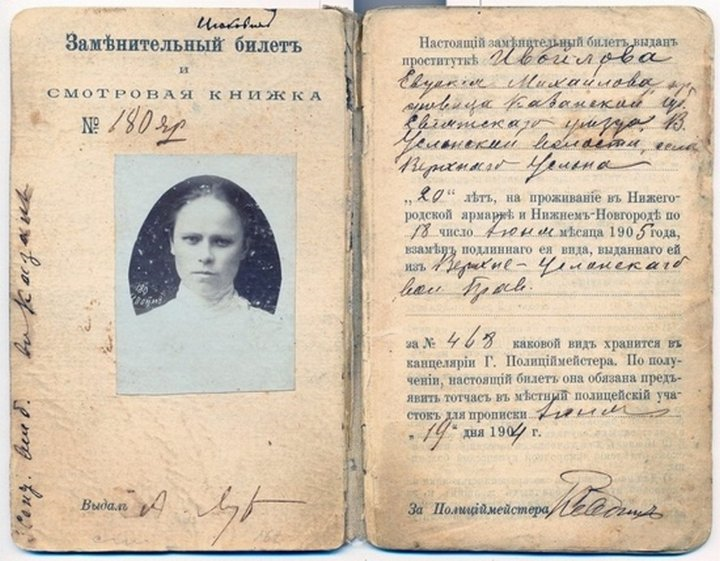 Замѣнительный билетъ
и
СМОТРОВАЯ КНИЖКА
№ 180 яр
Выдалъ
Настоящій замѣнительный билетъ выданъ
проституткѣ Ивойлова
Евдокія Михайлова кр
Казанской губ.
Свіяжскаго уѣзда, В.
Услонской волости, села
Верхняго Услона
„20“ лѣтъ, на проживаніе въ Нижего-
родской ярмаркѣ и Нижнемъ-Новгородѣ по
18 число Іюня мѣсяца 1905 года,
взамѣнъ подлиннаго ея вида, выданнаго ей
изъ Верхне-Услонскаго
вол Прав.
за № 468 каковой видъ хранится въ
канцеляріи Г. Полиціймейстера. По полу-
ченіи, настоящій билетъ она обязана предъ-
явить тотчасъ въ мѣстный полицейскій уча-
стокъ для прописки Іюня
„19“ дня 1904 г.
За Полиціймейстера